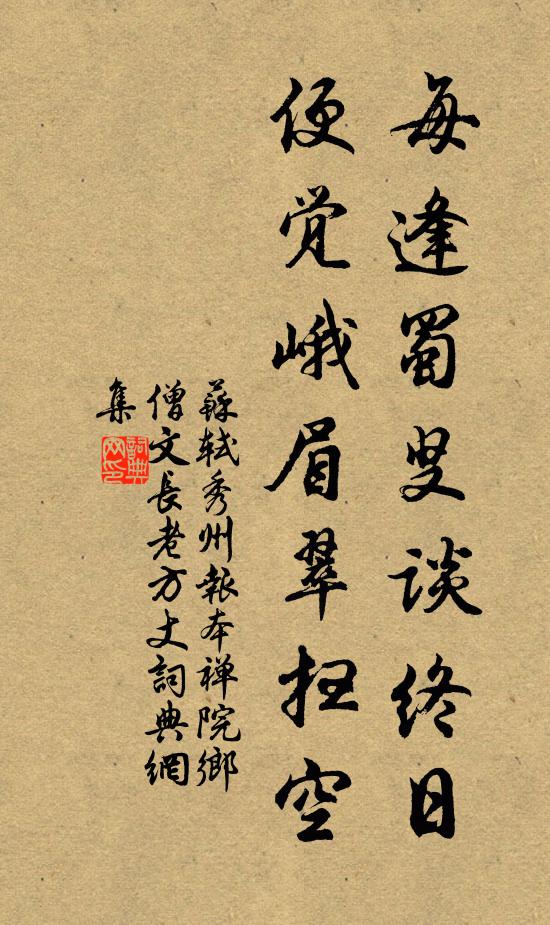 每逢蜀叟谈终日
便觉峨眉翠扫空
蘇軾秀州報本禅院鄉
僧文長老方丈詞典網
集
詞典
网印